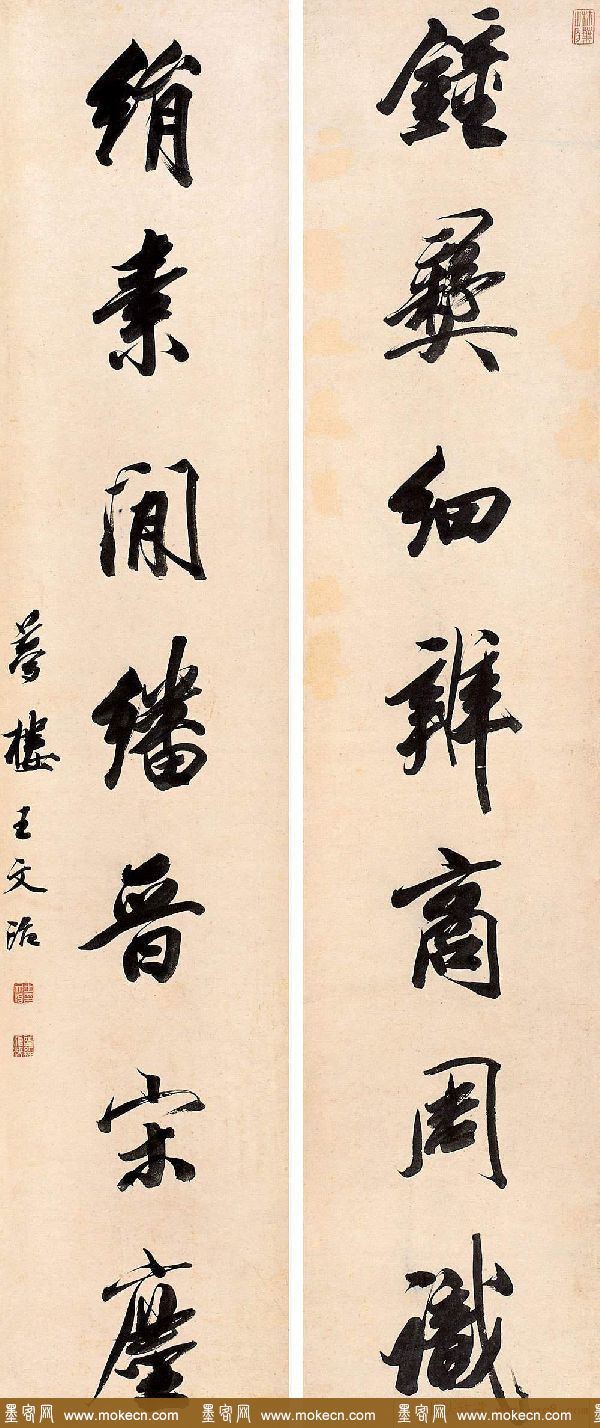 鍾彝细辨商周識
絹素閒繙晉宋塵
夢樓王文治
墨客网 www.mokecn.com 墨客网 www.mokecn.com 墨客网 www.mokecn.com